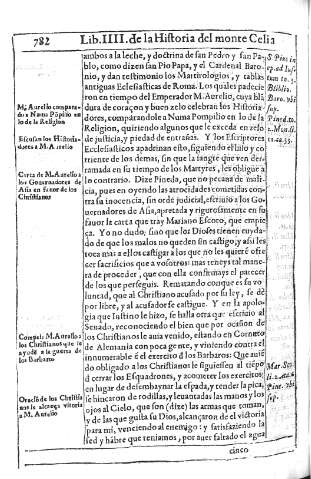 782 Lib.IIII. de la Historia del monte Celia
ambos a la leche, y doctrina de san Pedro y san Pa-
blo, como dizen san Pio Papa, y el Cardenal Baro-
nio, y dan testimonio los Martirologios, y tablas
antiguas Eclesiasticas de Roma. Los quales padecie
ron en tiempo del Emperador M. Aurelio, cuya blã
dura de coraçon y buen zelo celebran los Historia-
dores, comparandole a Numa Pompilio en lo de la
Religion, quiriendo algunos que le exceda en zelo
de justicia, y piedad de entrañas. Y los Escritores
Ecclesiasticos apadrinan esto, siguiendo el hilo y co
rriente de los demas, sin que la sangre que ven der-
ramada en su tiempo de los Martyres, les obligue à
lo contrario. Dize Pineda, que no pecana de mali-
cia, pues en oyendo las atrocidades cometidas con-
tra su inocencia, sin orde judicial, escriuio a los Go-
uernadores de Asia, apretada y rigurosamente en su
fauor la carta que tray Mariano Escoto, que empie
ça. Yo no dudo, sino que los Dioses tienen cuyda-
do de que los malos no queden sin castigo, y assi les
toca mas a ellos castigar a los que no les quieré ofre
cer sacrificios que a vosotros: mas teneys tal mane-
ra de proceder, que con ella confirmays el parecer
de los que perseguis. Rematando con que es su vo-
luntad, que al Christiano acusado por su ley, se dé
por libre, y al acusador se castigue. Y en la apolo-
gia que Iustino le hizo, se halla otra que escriuio al
Senado, reconociendo el bien que por ocasion de
los Christianos le auia venido, estando en Cornuto
de Alemania con poca gente, y viniendo contra el
innumerable è el exercito d los Barbaros: Que auié
do obligado a los Christianos le siguiessen al tiẽpo
d cerrar los Esquadrones, y acometer los exercitos:
en lugar de desembaynar la espada, y tender la pica,
se hincaron de rodillas, y leuantadas las manos y los
ojos al Cielo, que son (dize) las armas que toman,
y de las que gusta su Dios, alcançaron del la victoria
para mi, venciendo al enemigo: y satisfaziendo la
sed y hãbre que teniamos, por auer faltado el agua
cinco
M. Aurelio compara-
do a Numa Põpilio en
lo de la Religion
Escusan los Historia-
dores a M. Aurelio
Carta de M. Aurelio a
los Gouernadores de
Asia en fauor de los
Christianos
los Christianos que le
ayudẽ a la guerra de
los Barbaros
Oraciõ de los Christia
nos le alcança vitoria
a M. Aurelio
S. Pius in
Biblio.
Baro. vbi
sup.
Mar. Sco.
Pine. vbi
sup.